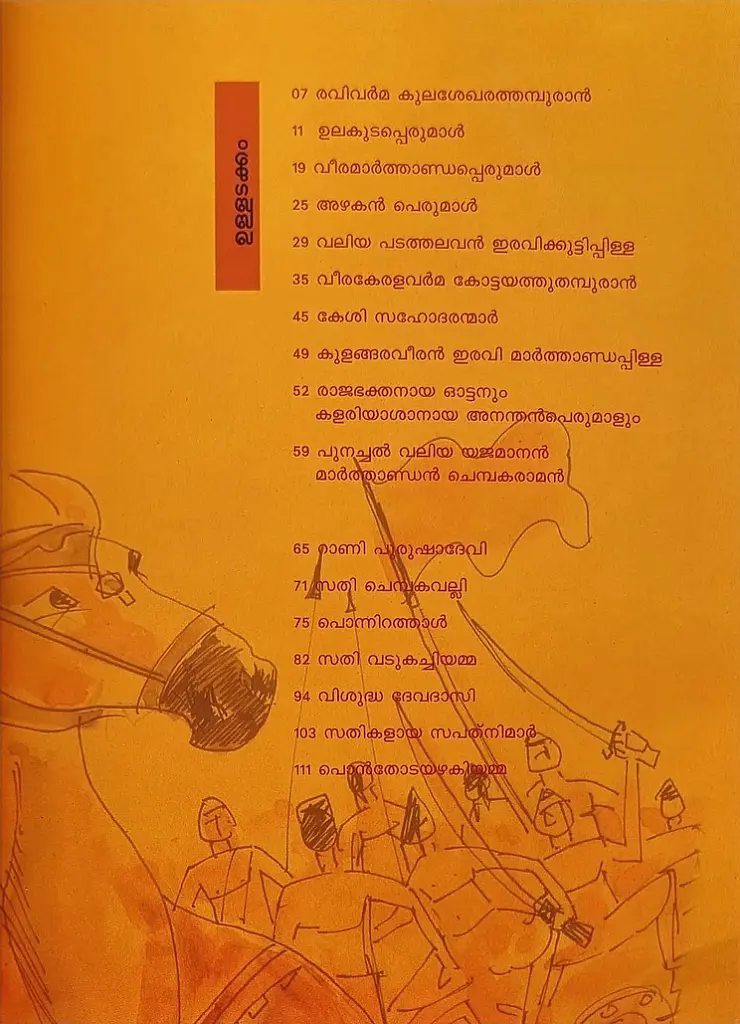 ഉള്ളടക്കം
07 രവിവർമ കുലശേഖരത്തമ്പുരാൻ
11 ഉലകുടപ്പെരുമാൾ
19 വീരമാർത്താണ്ഡപ്പെരുമാൾ
25 അഴകൻ പെരുമാൾ
29 വലിയ പടത്തലവൻ ഇരവിക്കുട്ടിപ്പിള്ള
35 വീരകേരളവർമ കോട്ടയത്തുതമ്പുരാൻ
45 കേശി സഹോദരന്മാർ
49 കുളങ്ങരവീരൻ ഇരവി മാർത്താണ്ഡപ്പിള്ള
52 രാജഭക്തനായ ഓട്ടനും
കളരിയാശാനായ അനന്തൻപെരുമാളും
59 പുനച്ചൽ വലിയ യജമാനൻ
മാർത്താണ്ഡൻ ചെമ്പകരാമൻ
65 റാണി പുരുഷാദേവി
71 സതി ചെമ്പകവല്ലി
75 പൊന്നിറത്താൾ
82 സതി വടുകച്ചിയമ്മ
94 വിശുദ്ധ ദേവദാസി
103 സതികളായ സപത്നിമാർ
111 പൊൻതോടയഴകിയമ്മ